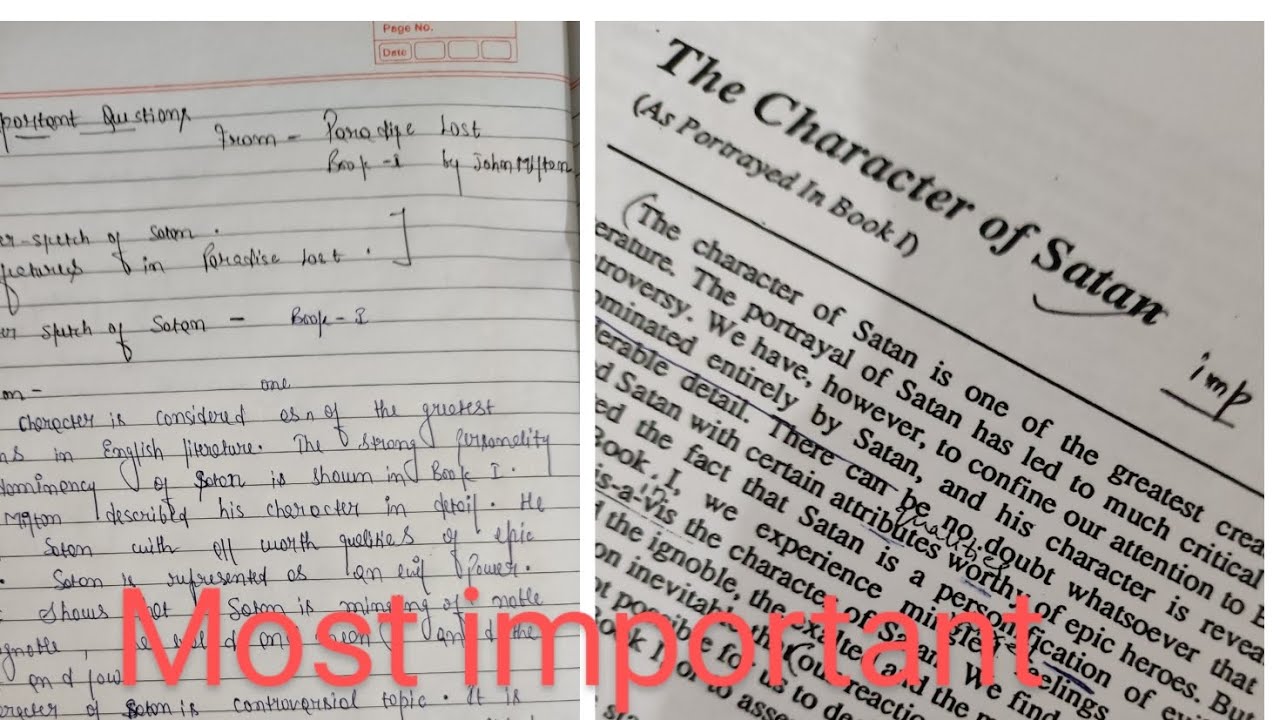 Page No.
Date
portant Questions
From - Paradise Lost
Book - I by John Milton
er-sketch of Satan.
in Paradise Lost.
er sketch of Satan - Book - I
on -
one
character is considered as of the greatest
ns in English literature. The strong personality
dominency of Satan is shown in Book I.
Milton described his character in detail. He
Satan with all worth qualities of epic
Satan is represented as an evil Power.
Shows Satan is mingling of noble
gnoble, and the
and low
racter of Satan is controversial topic. It is
The Character of Satan
(As Portrayed In Book I)
imp
(The character of Satan is one of the greatest crea
erature. The portrayal of Satan has led to much critical
troversy. We have, however, to confine our attention to B
ominated entirely by Satan, and his character is revea
derable detail. There can be no doubt whatsoever that
qualities
d Satan with certain attributes worthy of epic heroes. But
ed the fact that Satan is a personification of ev
Book I, we experience mingled feelings
in
is-a-vis the character of Satan. We find
the ignoble, the exalted and the m
on inevitable that (our reactio
ot possible for us to de
Book I or to asse
Most important